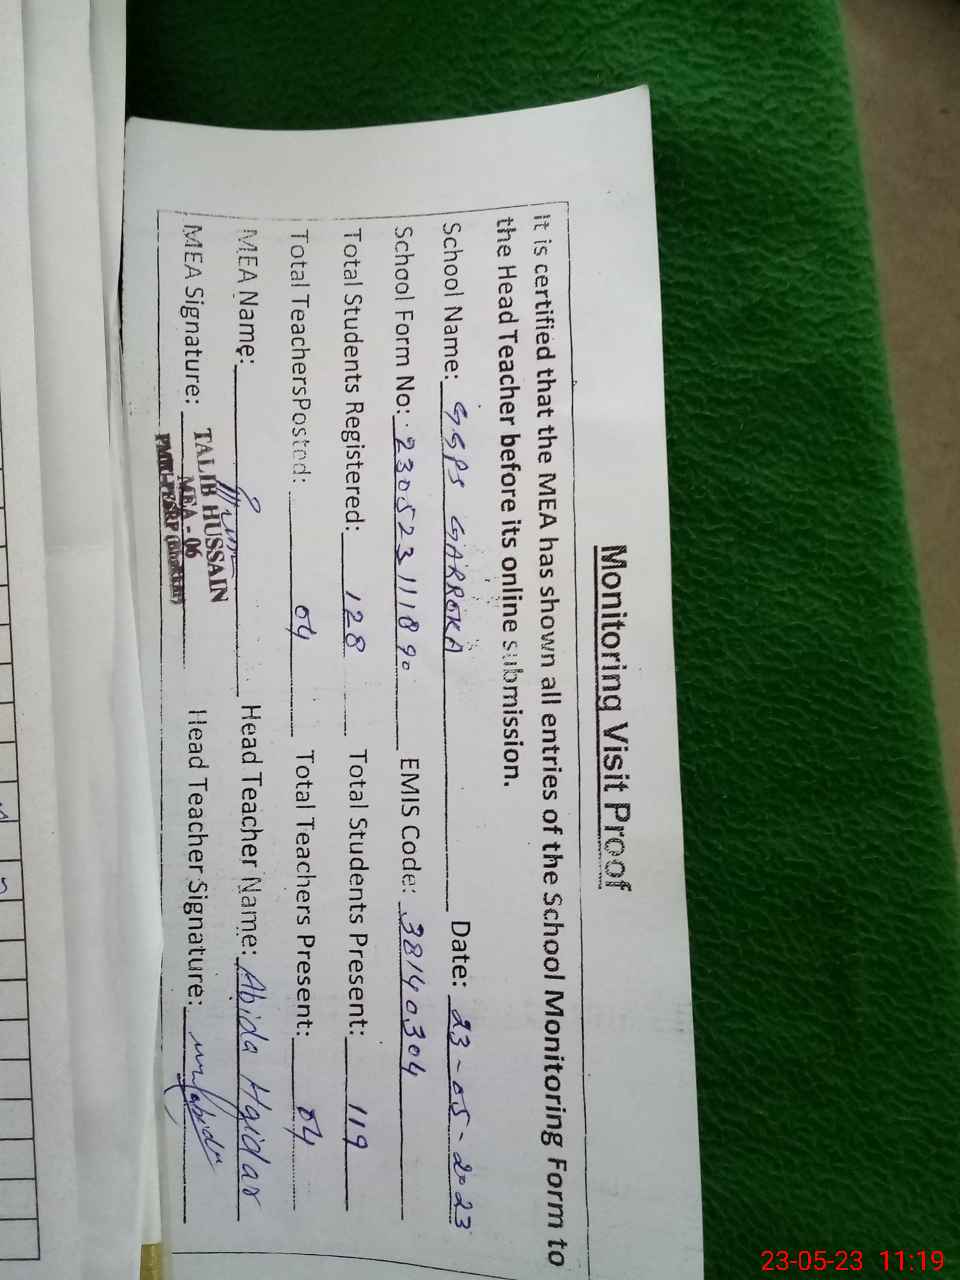 Monitoring Visit Proof
It is certified that the MEA has shown all entries of the School Monitoring Form to
the Head Teacher before its online submission.
School Name: GGPS GARROKA Date: 23-05-2023
School Form No: 23052311890 EMIS Code: 38140304
Total Students Registered: 128 Total Students Present: 119
Total TeachersPosted: 04 Total Teachers Present: 04
MEA Name: Head Teacher Name: Abida Haidar
MEA Signature: Head Teacher Signature:
TALIB HUSSAIN
MEA - 06
23-05-23 11:19